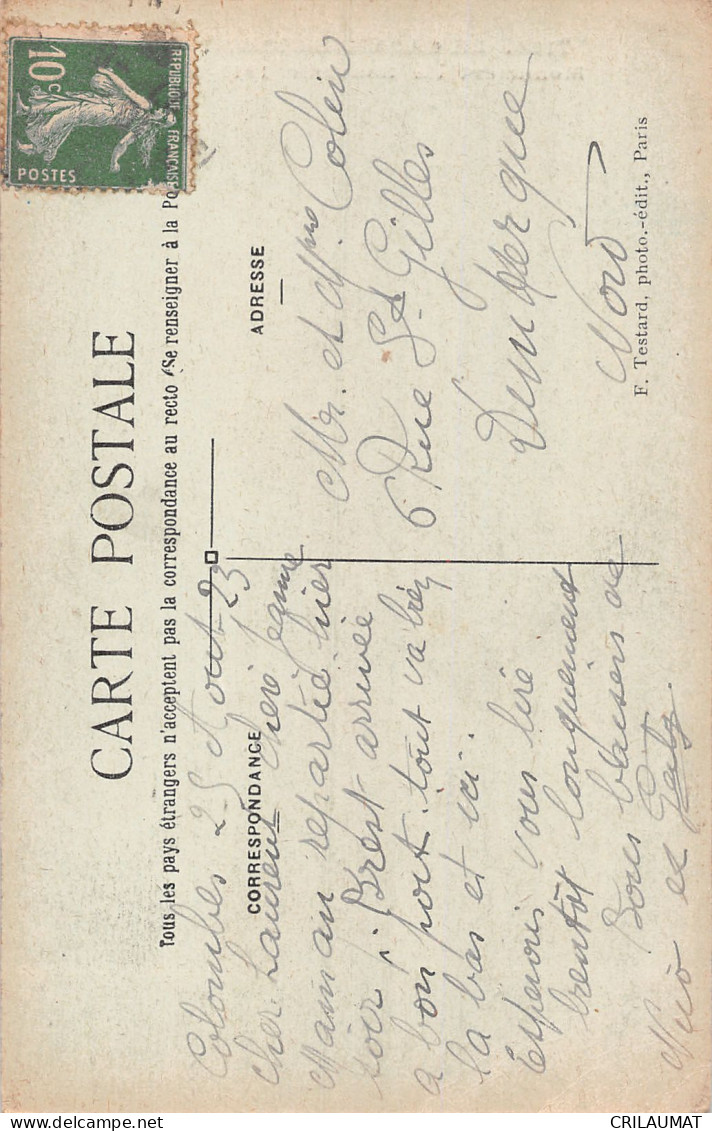 CARTE POSTALE
Tous les pays étrangers n'acceptent pas la correspondance au recto (Se renseigner à la Po
CORRESPONDANCE
ADRESSE
Colombes 25 Aout 23
Cher Laurent chère Jeanne
Maman repartie hier
soir, Brest arrivée
a bon port. tout va bien
la bas et ici.
Espérons vous lire
bientôt longuement
Bons baisers de
et Gaby
Mr. et Mme Colin
6 Rue St Gilles
Dunkerque
Nord
F. Testard, photo.-édit., Paris
10c
REPUBLIQUE FRANÇAISE
POSTES
CRILAUMAT